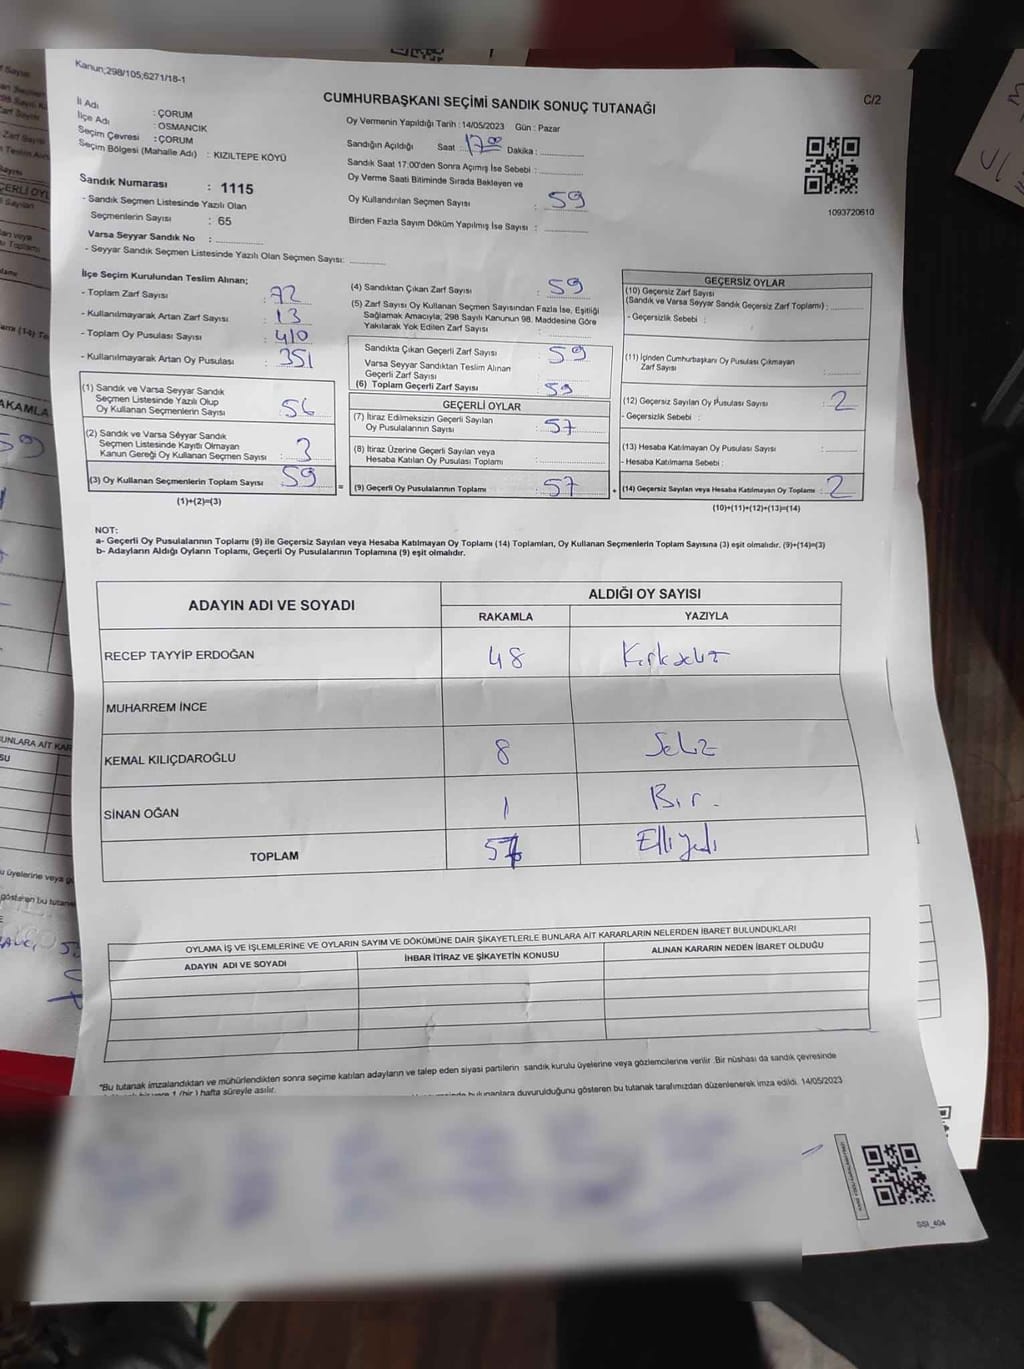 Kanun;298/105;6271/18-1
C/2
CUMHURBAŞKANI SEÇİMİ SANDIK SONUÇ TUTANAĞI
İl Adı : ÇORUM
İlçe Adı : OSMANCIK
Seçim Çevresi : ÇORUM
Seçim Bölgesi (Mahalle Adı) : KIZILTEPE KÖYÜ
Sandık Numarası : 1115
- Sandık Seçmen Listesinde Yazılı Olan
Seçmenlerin Sayısı : 65
Varsa Seyyar Sandık No :
- Seyyar Sandık Seçmen Listesinde Yazılı Olan Seçmen Sayısı:
Oy Vermenin Yapıldığı Tarih : 14/05/2023 Gün : Pazar
Sandığın Açıldığı Saat : 17:00 Dakika :
Sandık Saat 17:00'den Sonra Açmış İse Sebebi :
Oy Verme Saati Bitiminde Sırada Bekleyen ve
Oy Kullandırılan Seçmen Sayısı : 59
Birden Fazla Sayım Döküm Yapılmış İse Sayısı :
1093720610
İlçe Seçim Kurulundan Teslim Alınan;
- Toplam Zarf Sayısı : 72
- Kullanılmayarak Artan Zarf Sayısı : 13
- Toplam Oy Pusulası Sayısı : 410
- Kullanılmayarak Artan Oy Pusulası : 351
(1) Sandık ve Varsa Seyyar Sandık
Seçmen Listesinde Yazılı Olup
Oy Kullanan Seçmenlerin Sayısı : 56
(2) Sandık ve Varsa Seyyar Sandık
Seçmen Listesinde Kayıtlı Olmayan
Kanun Gereği Oy Kullanan Seçmen Sayısı : 3
(3) Oy Kullanan Seçmenlerin Toplam Sayısı : 59
(1)+(2)=(3)
(4) Sandıktan Çıkan Zarf Sayısı : 59
(5) Zarf Sayısı Oy Kullanan Seçmen Sayısından Fazla İse, Eşitliği
Sağlamak Amacıyla; 298 Sayılı Kanunun 98. Maddesine Göre
Yakılarak Yok Edilen Zarf Sayısı :
Sandıkta Çıkan Geçerli Zarf Sayısı : 59
Varsa Seyyar Sandıktan Teslim Alınan
Geçerli Zarf Sayısı :
(6) Toplam Geçerli Zarf Sayısı : 59
GEÇERLİ OYLAR
(7) İtiraz Edilmeksizin Geçerli Sayılan
Oy Pusulalarının Sayısı : 57
(8) İtiraz Üzerine Geçerli Sayılan veya
Hesaba Katılan Oy Pusulası Toplamı :
= (9) Geçerli Oy Pusulalarının Toplamı : 57 +
GEÇERSİZ OYLAR
(10) Geçersiz Zarf Sayısı
(Sandık ve Varsa Seyyar Sandık Geçersiz Zarf Toplamı) :
- Geçersizlik Sebebi :
(11) İçinden Cumhurbaşkanı Oy Pusulası Çıkmayan
Zarf Sayısı :
(12) Geçersiz Sayılan Oy Pusulası Sayısı : 2
- Geçersizlik Sebebi :
(13) Hesaba Katılmayan Oy Pusulası Sayısı :
- Hesaba Katılmama Sebebi :
(14) Geçersiz Sayılan veya Hesaba Katılmayan Oy Toplamı : 2
(10)+(11)+(12)+(13)=(14)
NOT:
a- Geçerli Oy Pusulalarının Toplamı (9) ile Geçersiz Sayılan veya Hesaba Katılmayan Oy Toplamı (14) Toplamları, Oy Kullanan Seçmenlerin Toplam Sayısına (3) eşit olmalıdır. (9)+(14)=(3)
b- Adayların Aldığı Oyların Toplamı, Geçerli Oy Pusulalarının Toplamına (9) eşit olmalıdır.
ADAYIN ADI VE SOYADI
ALDIĞI OY SAYISI
RAKAMLA YAZIYLA
RECEP TAYYİP ERDOĞAN 48 Kırksekiz
MUHARREM İNCE
KEMAL KILIÇDAROĞLU 8 Sekiz
SİNAN OĞAN 1 Bir.
TOPLAM 57 Elli yedi
OYLAMA İŞ VE İŞLEMLERİNE VE OYLARIN SAYIM VE DÖKÜMÜNE DAİR ŞİKAYETLERLE BUNLARA AİT KARARLARIN NELERDEN İBARET BULUNDUKLARI
ADAYIN ADI VE SOYADI İHBAR İTİRAZ VE ŞİKAYETİN KONUSU ALINAN KARARIN NEDEN İBARET OLDUĞU
*Bu tutanak imzalandıktan ve mühürlendikten sonra seçime katılan adayların ve talep eden siyasi partilerin sandık kurulu üyelerine veya gözlemcilerine verilir. Bir nüshası da sandık çevresinde
1 (bir) hafta süreyle asılır.
bulunanlara duyurulduğunu gösteren bu tutanak tarafımızdan düzenlenerek imza edildi. 14/05/2023
SSI_404